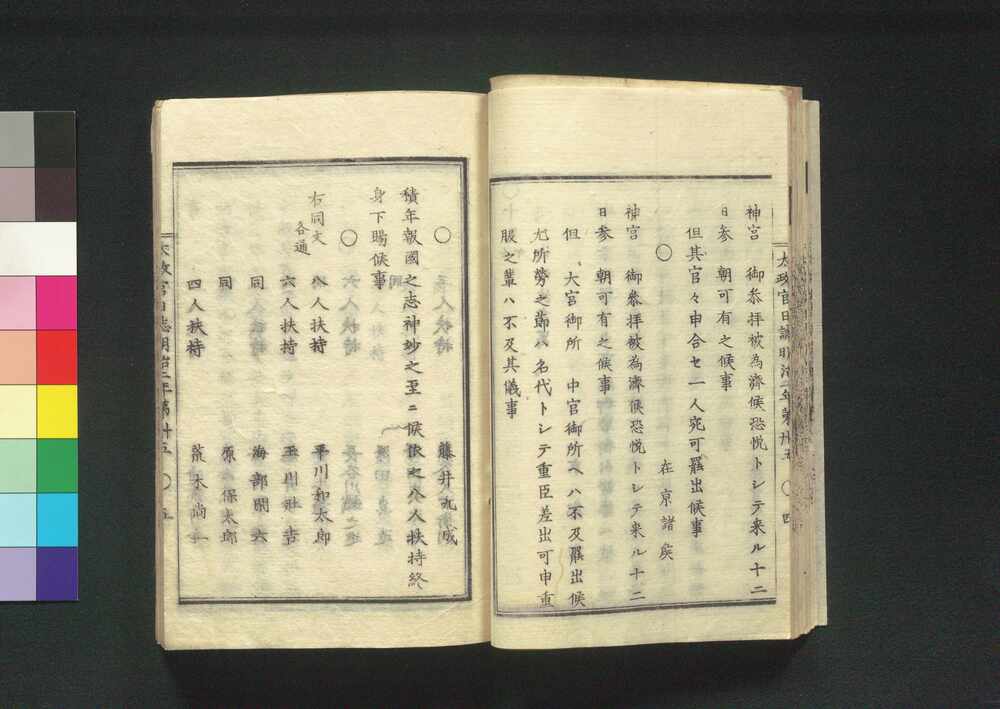 神宮　御参拝被為濟候恐悦トシテ来ル十二
日参　朝可有之候事
但其官々申合セ一人宛可罷出候事
〇　在京諸矦
神宮　御参拝被為濟候恐悦トシテ来ル十二
日参　朝可有之候事
但　大宮御所　中宮御所ヘハ不及罷出候
尤所勞之節ハ名代トシテ重臣差出可申重
服之輩ハ不及其儀事
太政官日誌明治二年第卅五　〇　四
〇　藤井九成
積年報國之志神妙之至ニ候依之八人扶持終
身下賜候事
〇
右同文
各通
八人扶持　平川和太郎
六人扶持　玉川壯吉
同　海部閑六
同　原保太郎
四人扶持　荒木尚一
太政官日誌明治二年第卅五　〇　五